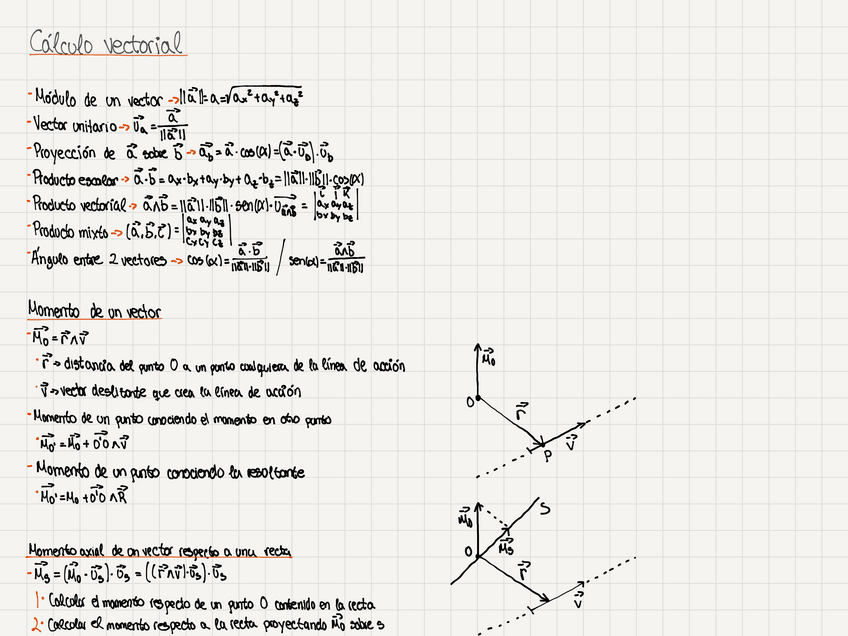 Cálculo vectorial
- Módulo de un vector → ||a⃗|| = a = √(ax² + ay² + az²)
- Vector unitario → u⃗a = a⃗ / ||a⃗||
- Proyección de a⃗ sobre b⃗ → a⃗b = a⃗ · cos(α) = (a⃗ · u⃗b) · u⃗b
- Producto escalar → a⃗ · b⃗ = ax · bx + ay · by + az · bz = ||a⃗|| · ||b⃗|| · cos(α)
- Producto vectorial → a⃗ ∧ b⃗ = ||a⃗|| · ||b⃗|| · sen(α) · u⃗a∧b = |i⃗ j⃗ k⃗; ax ay az; bx by bz|
- Producto mixto → (a⃗, b⃗, c⃗) = |ax ay az; bx by bz; cx cy cz|
- Ángulo entre 2 vectores → cos(α) = a⃗ · b⃗ / ||a⃗|| · ||b⃗|| / sen(α) = a⃗ ∧ b⃗ / ||a⃗|| · ||b⃗||
Momento de un vector
- M⃗o = r⃗ ∧ v⃗
· r⃗ → distancia del punto O a un punto cualquiera de la línea de acción
· v⃗ → vector deslizante que crea la línea de acción
- Momento de un punto conociendo el momento en otro punto
· M⃗o' = M⃗o + O'O ∧ v⃗
- Momento de un punto conociendo la resultante
· M⃗o' = Mo + O'O ∧ R⃗
Momento axial de un vector respecto a una recta
- M⃗s = (M⃗o · u⃗s) · u⃗s = ((r⃗ ∧ v⃗) · u⃗s) · u⃗s
1· Calcular el momento respecto de un punto O contenido en la recta
2· Calcular el momento respecto a la recta proyectando M⃗o sobre s
M⃗o
O
r⃗
P
v⃗
M⃗o
S
O
M⃗s
r⃗
v⃗